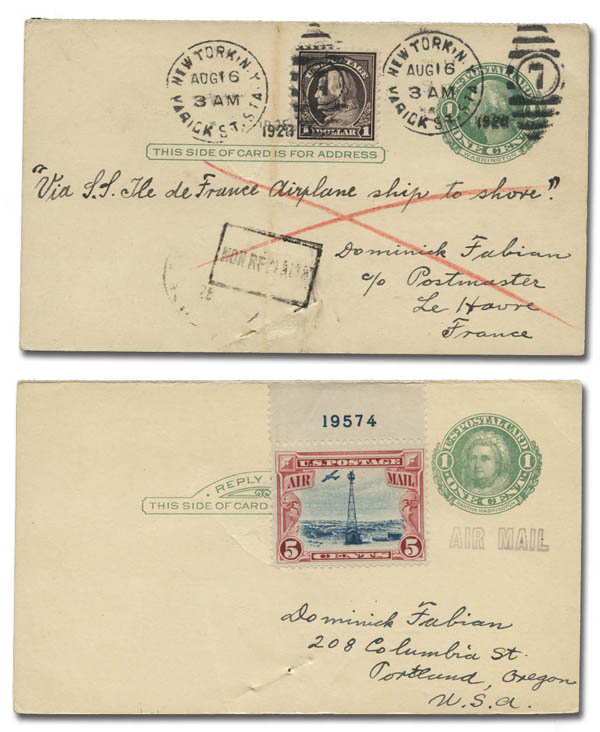 NEW YORK, N.Y.
AUG 16
3 AM
VARICK ST. STA.
1928
U.S. POSTAGE
1 DOLLAR 1
NEW YORK, N.Y.
AUG 16
3 AM
VARICK ST. STA.
1928
7
U.S. POSTAL CARD
1 1
ONE CENT
WASHINGTON
THIS SIDE OF CARD IS FOR ADDRESS
"Via S.S. Ile de France Airplane ship to shore".
NON RECLAMÉ
Dominick Fabian
c/o Postmaster
Le Havre
France
19574
U.S. POSTAGE
AIR MAIL
5 CENTS 5
U.S. POSTAL CARD
1 1
ONE CENT
MARTHA WASHINGTON
REPLY
THIS SIDE OF CARD
AIR MAIL
Dominick Fabian
208 Columbia St.
Portland, Oregon
U.S.A.